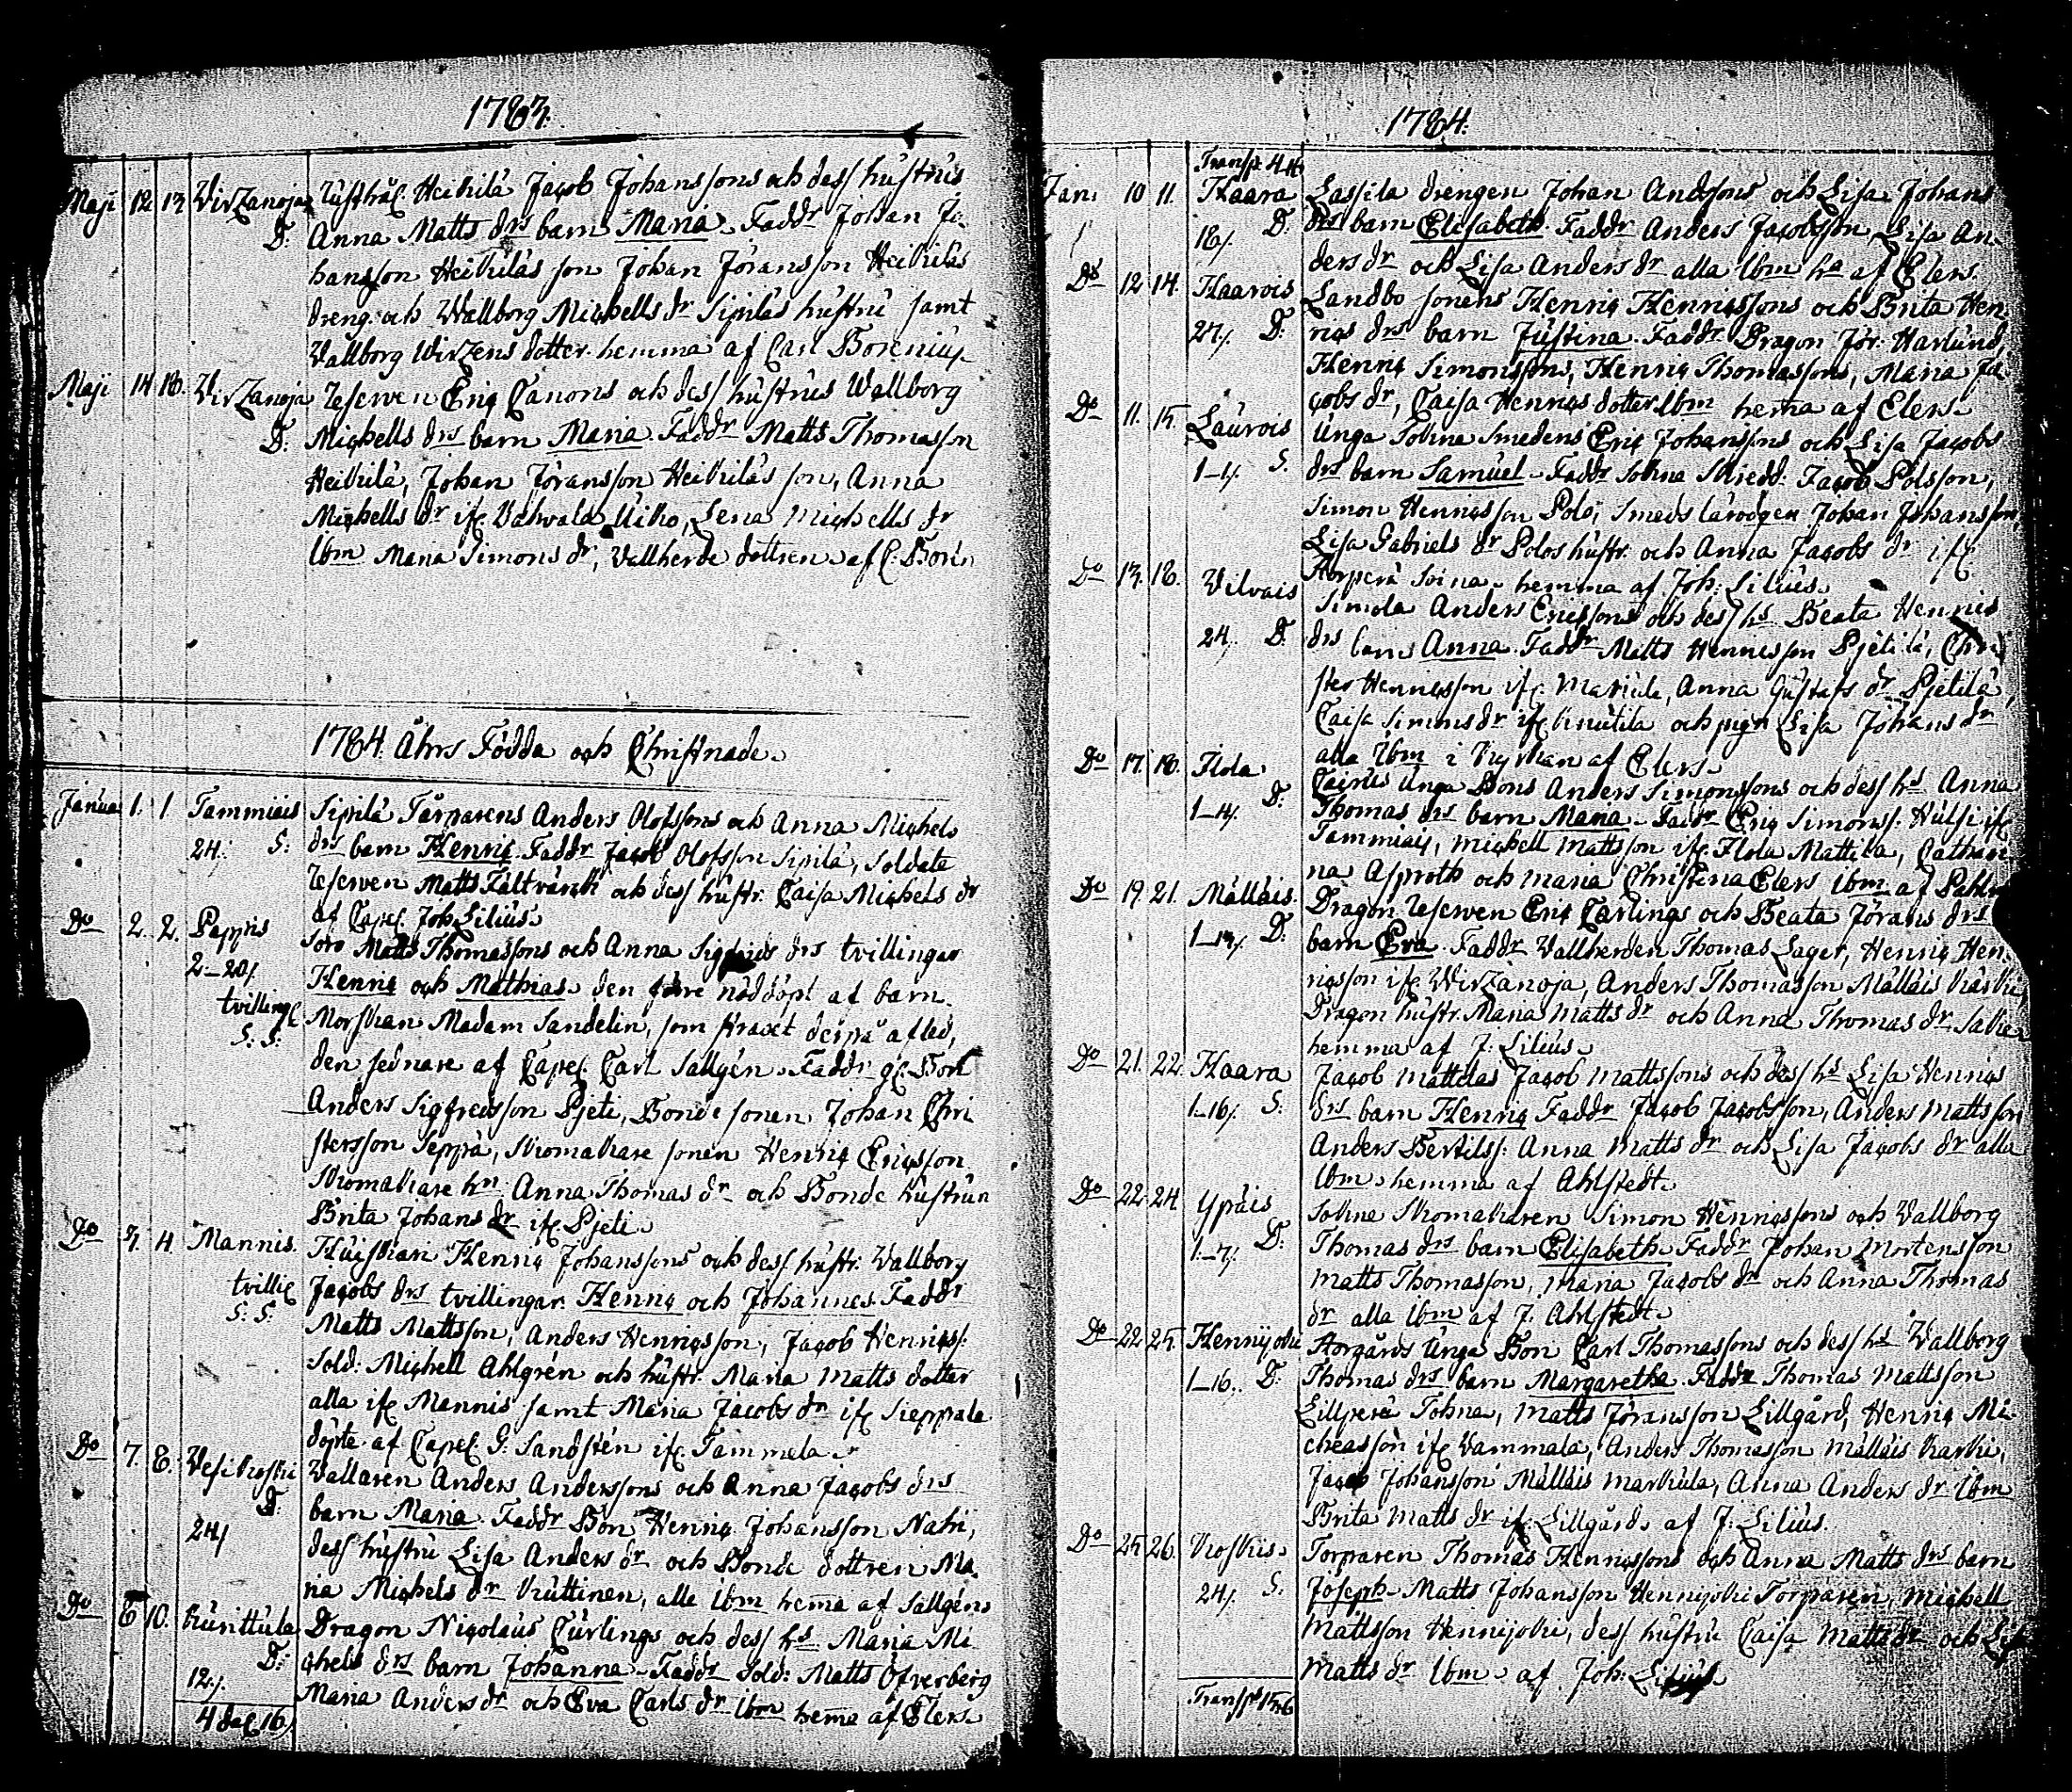 1783.
Maji 12 13 Virzanoja Rusthål. Heikilä Jacob Johanssons och dess hustrus
D. Anna Matts drs barn Maria. Faddr Johan Jo
hansson Heikiläs son Johan Jöransson Heikiläs
dreng och Wallborg Michells dr Sipiläs hustru samt
Vallborg Virzens dotter hemma af Carl Borenius
Maji 14 18. Virzanoja Reserven Eric Canons och dess hustrus Wallborg
D. Michells drs barn Maria. Faddr Matts Thomasson
Heikilä, Johan Jöransson Heikiläs son, Anna
Michells dr Uikio, Lena Michells dr
Ibm Maria Simons dr, Vallherde dottren af C. Boren
1784. Åhrs Födda och Christnade.
Janua 1. 1 Tammiais Sipilä Tårparens Anders Olofssons och Anna Michels
24. S. drs barn Henric. Faddr Jacob Olofsson Sipilä, Soldats
Reserven Matts Fältvärck och dess hustr. Caisa Michels dr
af Capel. Joh Lilius.
Do 2. 2. Pappis Matts Thomassons och Anna Sigfrids drs tvillingar
2-20/. Henric och Mathias. den förre nöddöpt af barn
tvilling Morskan Madam Sandelin, som straxt derpå afled,
S: S: den sednare af Capel. Carl Sallgén. Faddr Bon
Anders Sigfredsson Pjeti, Bonde sonen Johan Chri
stersson Seppä, Skomakare sonen Henric Ericsson
Skomakare hn Anna Thomas dr och Bonde hustrun
Brita Johans dr if. Pjeti.
Do 3. 4. Mannis. Henric Johanssons och dess hustr. Vallborg
tvillin Jacobs drs tvillingar. Henric och Johannes. Faddr
S: S: Matts Mattsson, Anders Henricsson, Jacob Henricss:
Sold: Michell Ahlgrén och hustr. Maria Matts dotter
alla if. Mannis samt Maria Jacobs dr if. Sieppala
döpte af Capel. G: Sandstén if. Tammela.
Do 7. 8. Vesikoski Vallaren Anders Anderssons och Anna Jacobs drs
D. barn Maria. Faddr Bon Henric Johansson Nahi,
24/ dess hustru Lisa Anders dr och Bonde dottren Ma
ria Michels dr Ruttinen, alla Ibm hema af Sallgéns
Do 8 10. Kurittula Dragon Nicolaus Curlings och dess hs Maria Mi
D. chels drs barn Johanna. Faddr Sold: Matts Öfverberg
12/. Maria Anders dr och Eva Carls dr Ibm hema af Elers.
4 16/.
1784.
Transp. 4.16
Jan: 10 11. Haara Lassila drengen Johan Anderssons och Lisa Johans
18/. D: drs barn Elisabeth. Faddr Anders Jacobsson, Lisa An
ders dr och Lisa Anders dr alla Ibm ha af Elers.
Do 12 14. Haarois Landbo sonens Henric Henricssons och Brita Hen
27/. D: rics drs barn Justina. Faddr Dragon Jör: Harlund,
Henric Simonssons, Henric Thomassons, Maria Ja
cobs dr, Caisa Henrics dotter Ibm hema af Elers.
Do 11. 15. Laurois Unga Sokne Smedens Eric Johanssons och Lisa Jacobs
1-1/. S. drs barn Samuel. Faddr Sokne Smedd: Jacob Polsson,
Simon Henricsson Polo, Smeds lärodgen Johan Johansson,
Lisa Gabriels dr Polos hustr. och Anna Jacobs dr if.
Torperä Soina. hemma af Joh: Lilius.
Do 13. 18. Vilvais Simola Anders Ericssons och dess hs Beata Henrics
24/. D. drs barn Anna. Faddr Matts Henricsson Pjetilä, Chri
ster Henricsson if. Markula, Anna Gustafs dr Pjetilä,
Caisa Simons dr if. Knutila och pign Lisa Johans dr
alla Ibm i Kyrkan af Elers.
Do 17. 18. Flola Unga Bons Anders Simonssons och dess hs Anna
1-14/. D: Thomas drs barn Maria. Faddr Eric Simonss. Hulsi if.
Tammiais, Michell Mattsson if. Flola Mattila, Cathari
na Asproth och Maria Christina Elers Ibm af Pahlm
Do 19. 21. Mälläis. Dragon Reserven Eric Carlings och Beata Jörans drs
1-13/. D: barn Eva. Faddr Vallherden Thomas Lager, Henric Hen
ricsson if. Wirzanoja, Anders Thomasson Mälläis Karki,
Dragon hustr. Maria Matts dr och Anna Thomas dr
hemma af J: Lilius.
Do 21. 22. Haara Jacob Mattilas Jacob Mattssons och dess hs Lisa Henrics
1-16/. S. drs barn Henric Faddr Jacob Jacobsson, Anders Mattsson
Anders Bertilss: Anna Matts dr och Lisa Jacobs dr alla
Ibm hemma af Ahlstedt.
Do 22. 24 Ypäis Sokne Skomakaren Simon Henricssons och Vallborg
1-7/. D: Thomas drs barn Elisabeth. Faddr Johan Mortensson
Matts Thomasson, Maria Jacobs dr och Anna Thomas
dr alla Ibm af J. Ahlstedt.
Do 22 25. Hennijoki Storgårds Unga Bon Carl Thomassons och dess hs Wallborg
1-16. D: Thomas drs barn Margaretha. Faddr Thomas Mattsson
Lillperä Tohna, Matts Jöransson Lillgård, Henric Mi
cheasson if. Vammala, Anders Thomasson Mälläis Karki,
Jacob Johansson Mälläis Markula, Anna Anders dr Ibm
Brita Matts dr if. Lillgårds af J: Lilius.
Do 25 26. Koskis. Torparen Thomas Henricssons och Anna Matts drs barn
24/. S. Joseph. Matts Johansson Hennijoki Torparen, Michell
Mattsson Hennijoki, dess hustru Caisa Matts dr och Lis
Matts dr Ibm. af Joh: Lilius.
Transp